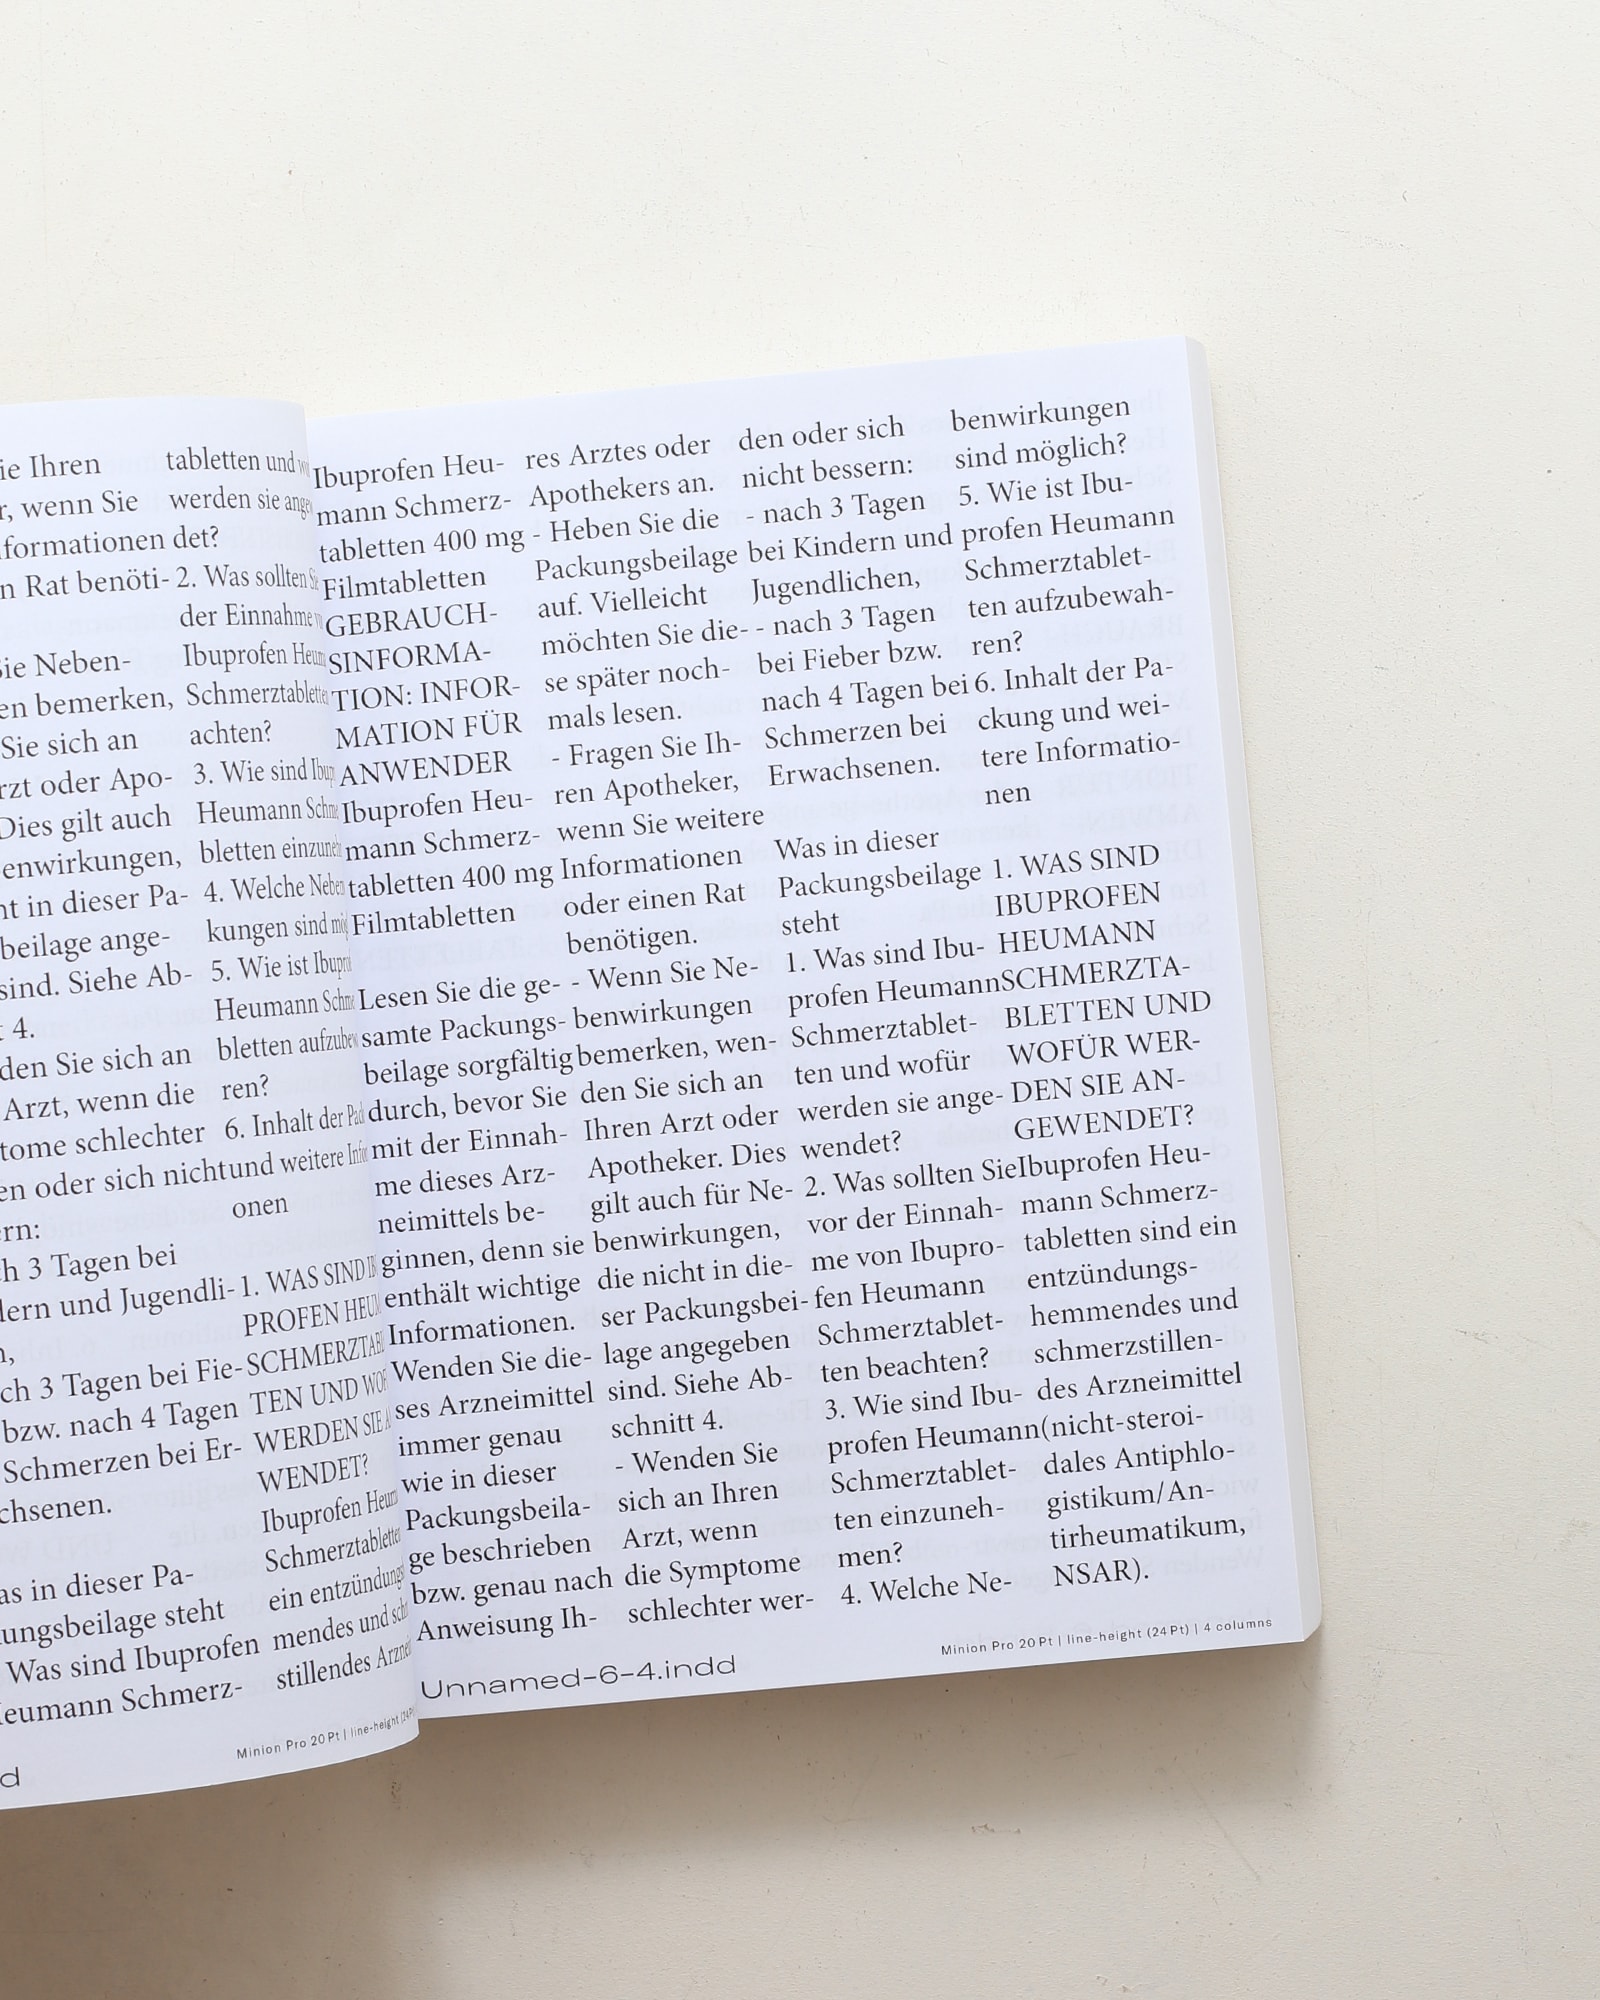 ie Ihren
r, wenn Sie
formationen
n Rat benöti-
ie Neben-
en bemerken,
Sie sich an
rzt oder Apo-
Dies gilt auch
enwirkungen,
ht in dieser Pa-
beilage ange-
sind. Siehe Ab-
t 4.
den Sie sich an
Arzt, wenn die
tome schlechter
en oder sich nicht
ern:
ch 3 Tagen bei
dern und Jugendli-
n,
ch 3 Tagen bei Fie-
bzw. nach 4 Tagen
Schmerzen bei Er-
chsenen.
as in dieser Pa-
ungsbeilage steht
Was sind Ibuprofen
Heumann Schmerz-
tabletten und
werden sie ange
det?
2. Was sollten Sie
der Einnahme
Ibuprofen Heum
Schmerztablette
achten?
3. Wie sind Ibup
Heumann Schm
bletten einzuneh
4. Welche Neben
kungen sind mö
5. Wie ist Ibupr
Heumann Schme
bletten aufzubew
ren?
6. Inhalt der Pac
und weitere Info
onen
1. WAS SIND IB
PROFEN HEUM
SCHMERZTABL
TEN UND WOF
WERDEN SIE A
WENDET?
Ibuprofen Heum
Schmerztablette
ein entzündungs
mendes und sch
stillendes Arznei
Minion Pro 20 Pt | line-height (24P
d
Ibuprofen Heu-
mann Schmerz-
tabletten 400 mg
Filmtabletten
GEBRAUCH-
SINFORMA-
TION: INFOR-
MATION FÜR
ANWENDER
Ibuprofen Heu-
mann Schmerz-
tabletten 400 mg
Filmtabletten
Lesen Sie die ge-
samte Packungs-
beilage sorgfältig
durch, bevor Sie
mit der Einnah-
me dieses Arz-
neimittels be-
ginnen, denn sie
enthält wichtige
Informationen.
Wenden Sie die-
ses Arzneimittel
immer genau
wie in dieser
Packungsbeila-
ge beschrieben
bzw. genau nach
Anweisung Ih-
res Arztes oder
Apothekers an.
- Heben Sie die
Packungsbeilage
auf. Vielleicht
möchten Sie die-
se später noch-
mals lesen.
- Fragen Sie Ih-
ren Apotheker,
wenn Sie weitere
Informationen
oder einen Rat
benötigen.
- Wenn Sie Ne-
benwirkungen
bemerken, wen-
den Sie sich an
Ihren Arzt oder
Apotheker. Dies
gilt auch für Ne-
benwirkungen,
die nicht in die-
ser Packungsbei-
lage angegeben
sind. Siehe Ab-
schnitt 4.
- Wenden Sie
sich an Ihren
Arzt, wenn
die Symptome
schlechter wer-
den oder sich
nicht bessern:
- nach 3 Tagen
bei Kindern und
Jugendlichen,
- nach 3 Tagen
bei Fieber bzw.
nach 4 Tagen bei
Schmerzen bei
Erwachsenen.
Was in dieser
Packungsbeilage
steht
1. Was sind Ibu-
profen Heumann
Schmerztablet-
ten und wofür
werden sie ange-
wendet?
2. Was sollten Sie
vor der Einnah-
me von Ibupro-
fen Heumann
Schmerztablet-
ten beachten?
3. Wie sind Ibu-
profen Heumann
Schmerztablet-
ten einzuneh-
men?
4. Welche Ne-
benwirkungen
sind möglich?
5. Wie ist Ibu-
profen Heumann
Schmerztablet-
ten aufzubewah-
ren?
6. Inhalt der Pa-
ckung und wei-
tere Informatio-
nen
1. WAS SIND
IBUPROFEN
HEUMANN
SCHMERZTA-
BLETTEN UND
WOFÜR WER-
DEN SIE AN-
GEWENDET?
Ibuprofen Heu-
mann Schmerz-
tabletten sind ein
entzündungs-
hemmendes und
schmerzstillen-
des Arzneimittel
(nicht-steroi-
dales Antiphlo-
gistikum/An-
tirheumatikum,
NSAR).
Unnamed-6-4.indd
Minion Pro 20 Pt | line-height (24 Pt) | 4 columns